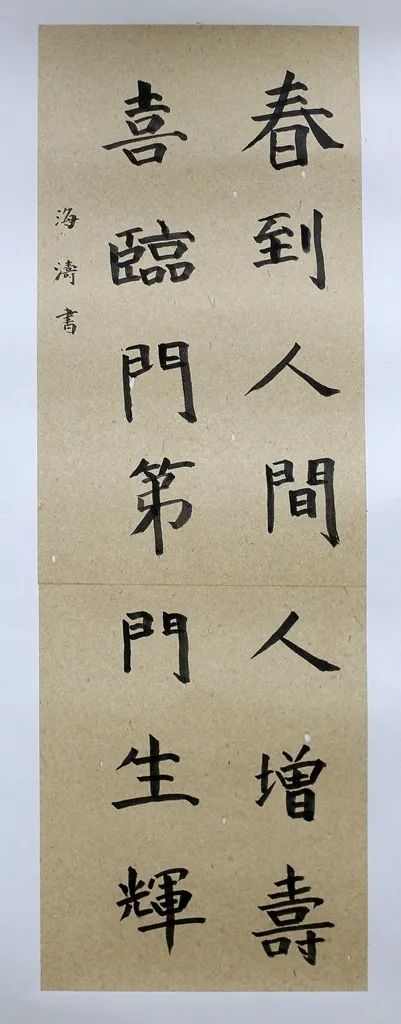 春到人間人增壽
喜臨門第門生輝
海濤書